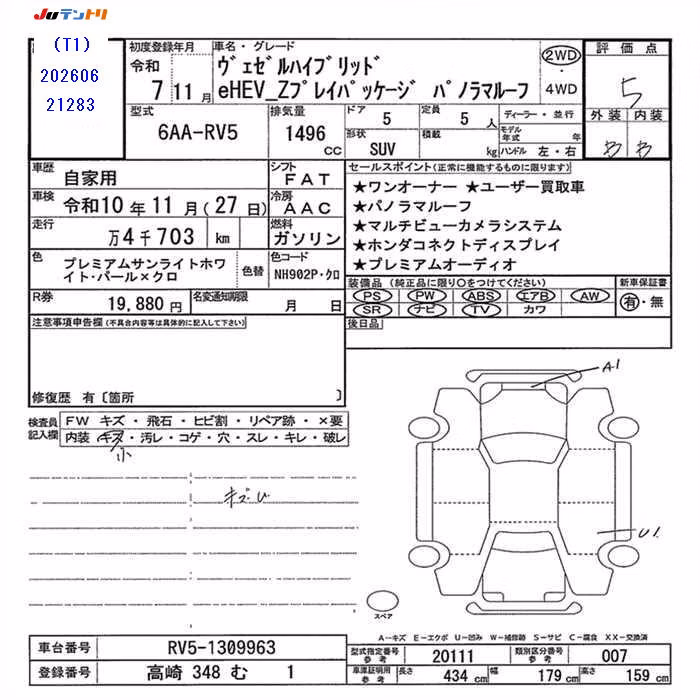 JUテントリ
(T1)
202606
21283
初度登録年月
令和
7 11月
車名・グレード
ヴェゼルハイブリッド
eHEV_Zプレイパッケージ パノラマルーフ
2WD
・
4WD
評価点
5
外装 内装
型式
6AA-RV5
排気量
1496
cc
ドア
5
定員
5 人
形状
SUV
積載
kg
ディーラー・並行
モデル年式 年
ハンドル 左・右
車歴
自家用
シフト
FAT
車検
令和10年11月(27日)
冷房
AAC
走行
万4千703 km
燃料
ガソリン
色
プレミアムサンライトホワイト・パール×クロ
色替
色コード
NH902P・クロ
R券
19,880円
名変通知期限
月 日
セールスポイント(正常に機能するものに限ります)
★ワンオーナー ★ユーザー買取車
★パノラマルーフ
★マルチビューカメラシステム
★ホンダコネクトディスプレイ
★プレミアムオーディオ
装備品 (純正品に限り○をつけてください)
PS PW ABS エアB AW
SR ナビ TV カワ
新車保証書
有・無
後日品
注意事項申告欄(不具合内容等は具体的に記入して下さい)
修復歴 有〔箇所 〕
検査員記入欄
FW キズ・飛石・ヒビ割・リペア跡・×要
内装 キズ・汚レ・コゲ・穴・スレ・キレ・破レ
小
A1
U1
スペア
A-キズ E-エクボ U-凹み W-補修跡 S-サビ C-腐食 XX-交換済
車台番号
RV5-1309963
登録番号
高崎 348 む 1
型式指定番号
参考
20111
類別区分番号
参考
007
車庫証明用
参考
長さ 434 cm
幅 179 cm
高さ 159 cm